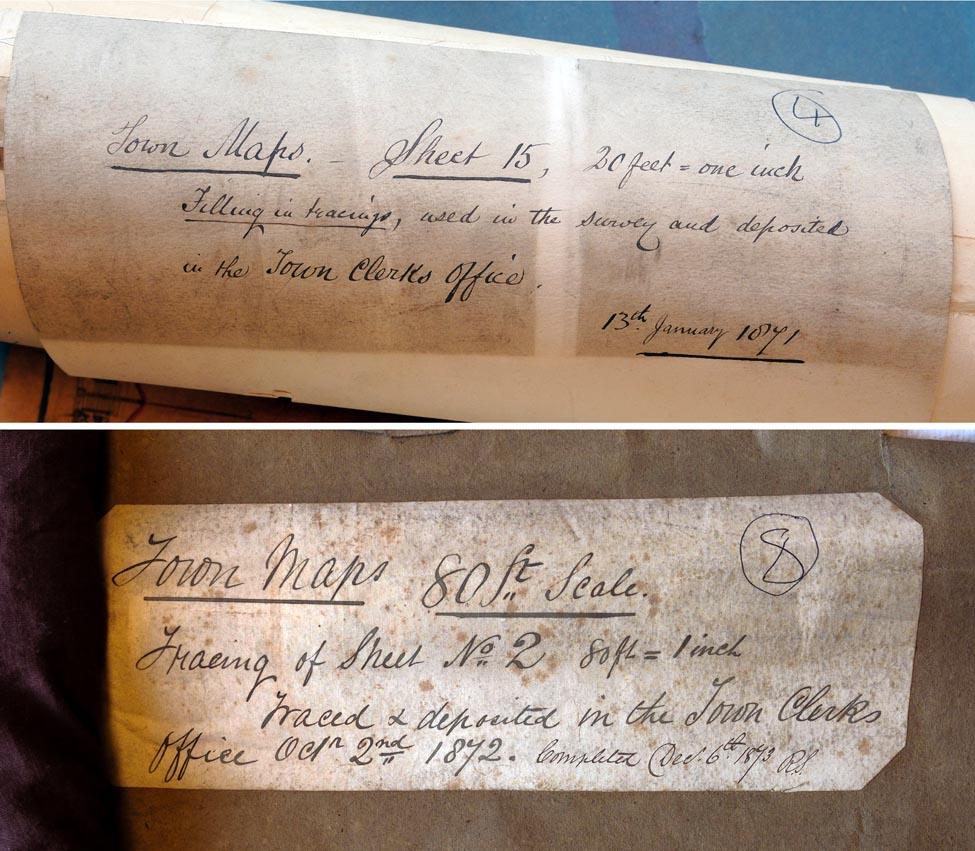 4
Town Maps. - Sheet 15, 20 feet = one inch
Filling in tracings, used in the survey and deposited
in the Town Clerks Office.
13th January 1871
8
Town Maps 80 ft Scale.
Tracing of Sheet No. 2 80ft = 1 inch
Traced & deposited in the Town Clerks
Office Octr 2nd 1872. Completed Dec. 6th 1873